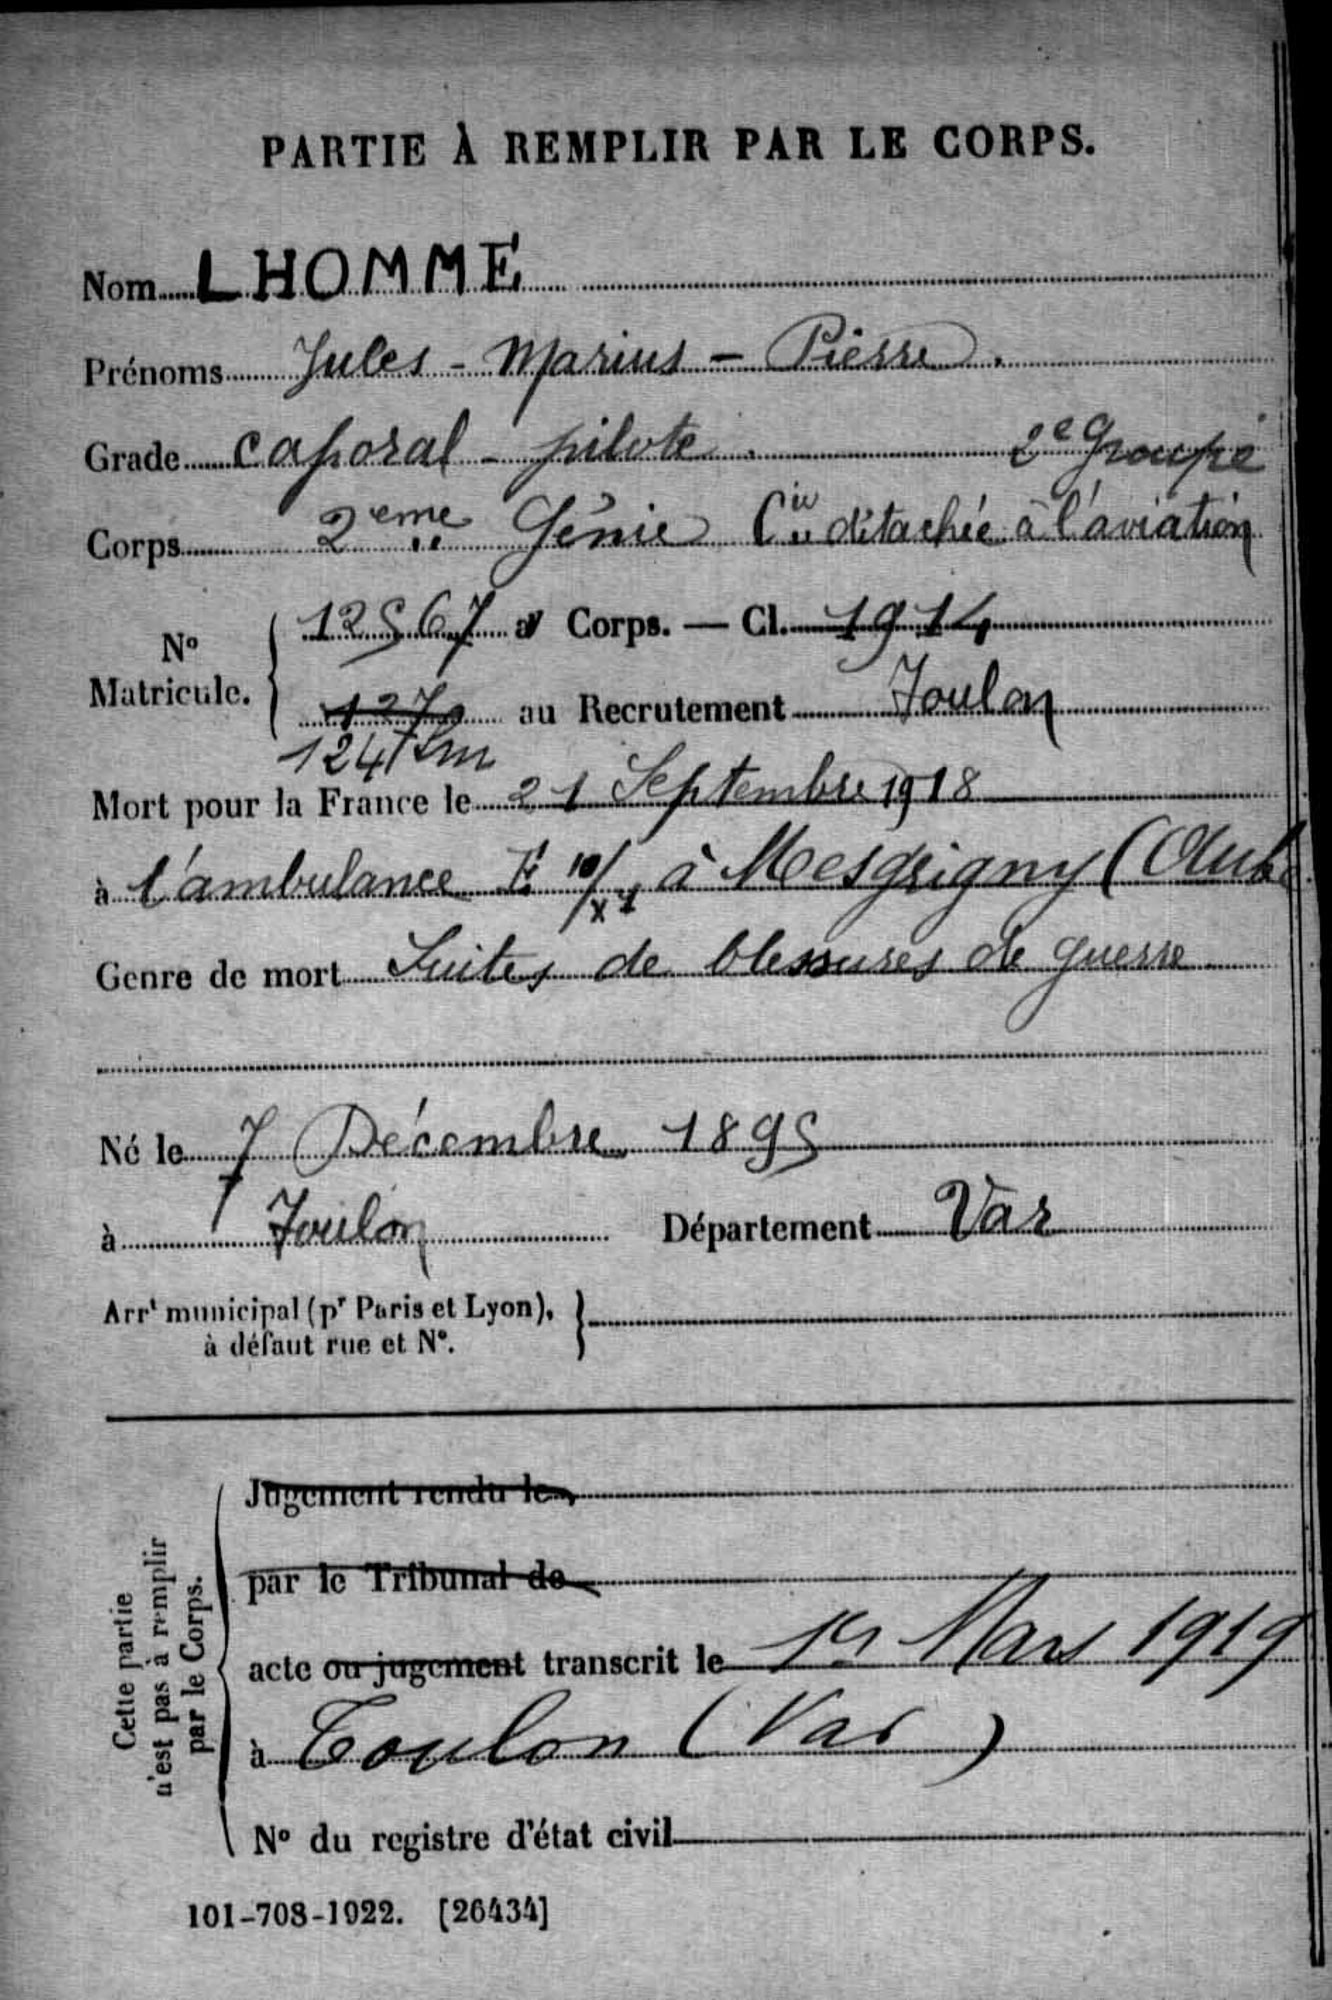 PARTIE À REMPLIR PAR LE CORPS.
Nom LHOMME
Prénoms Jules - Marius - Pierre.
Grade caporal - pilote. 2e Groupe
Corps 2eme Génie Cie détachée à l'aviation
No Matricule. 12567 au Corps. — Cl. 1914
1270 au Recrutement Toulon
1247
Mort pour la France le 21 Septembre 1918
à l'ambulance E 10/X à Mesgrigny (Aube
Genre de mort Suites de blessures de guerre
Né le 7 Décembre 1895
à Toulon Département Var
Arrt municipal (pr Paris et Lyon),
à défaut rue et No.
Cette partie
n'est pas à remplir
par le Corps.
Jugement rendu le
par le Tribunal de
acte ou jugement transcrit le 1er Mars 1919
à Toulon (Var)
No du registre d'état civil
101-708-1922. [26434]